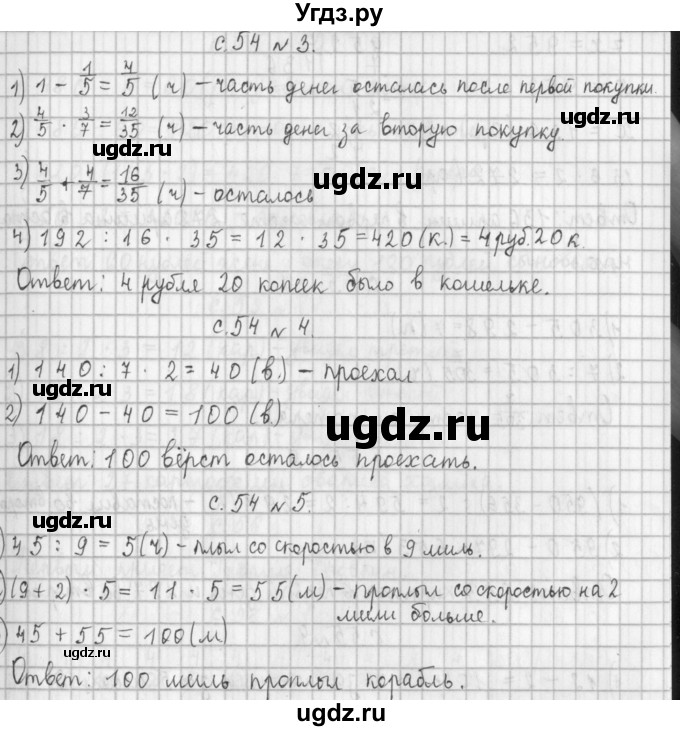 Угдз.ру
с.54 №3.
1) 1 - 1/5 = 4/5 (ч) – часть денег осталась после первой покупки.
2) 4/5 · 3/7 = 12/35 (ч) – часть денег за вторую покупку.
ugdz.ru
ugdz.ru
3) 4/5 + 4/7 = 16/35 (ч) – осталось
ugdz.ru
4) 192 : 16 · 35 = 12 · 35 = 420 (к.) = 4 руб. 20 к.
ugdz.ru
Ответ: 4 рубля 20 копеек было в кошельке.
с.54 №4.
1) 140 : 7 · 2 = 40 (в.) – проехал
ugdz.ru
2) 140 - 40 = 100 (в)
ugdz.ru
Ответ: 100 вёрст осталось проехать.
с.54 №5.
ugdz.ru
) 45 : 9 = 5 (ч) – плыл со скоростью в 9 миль.
) (9 + 2) · 5 = 11 · 5 = 55 (м) – проплыл со скоростью на 2
мили больше.
ugdz.ru
) 45 + 55 = 100 (м)
ugdz.ru
Ответ: 100 миль проплыл корабль.
ugdz.ru
ugdz.ru